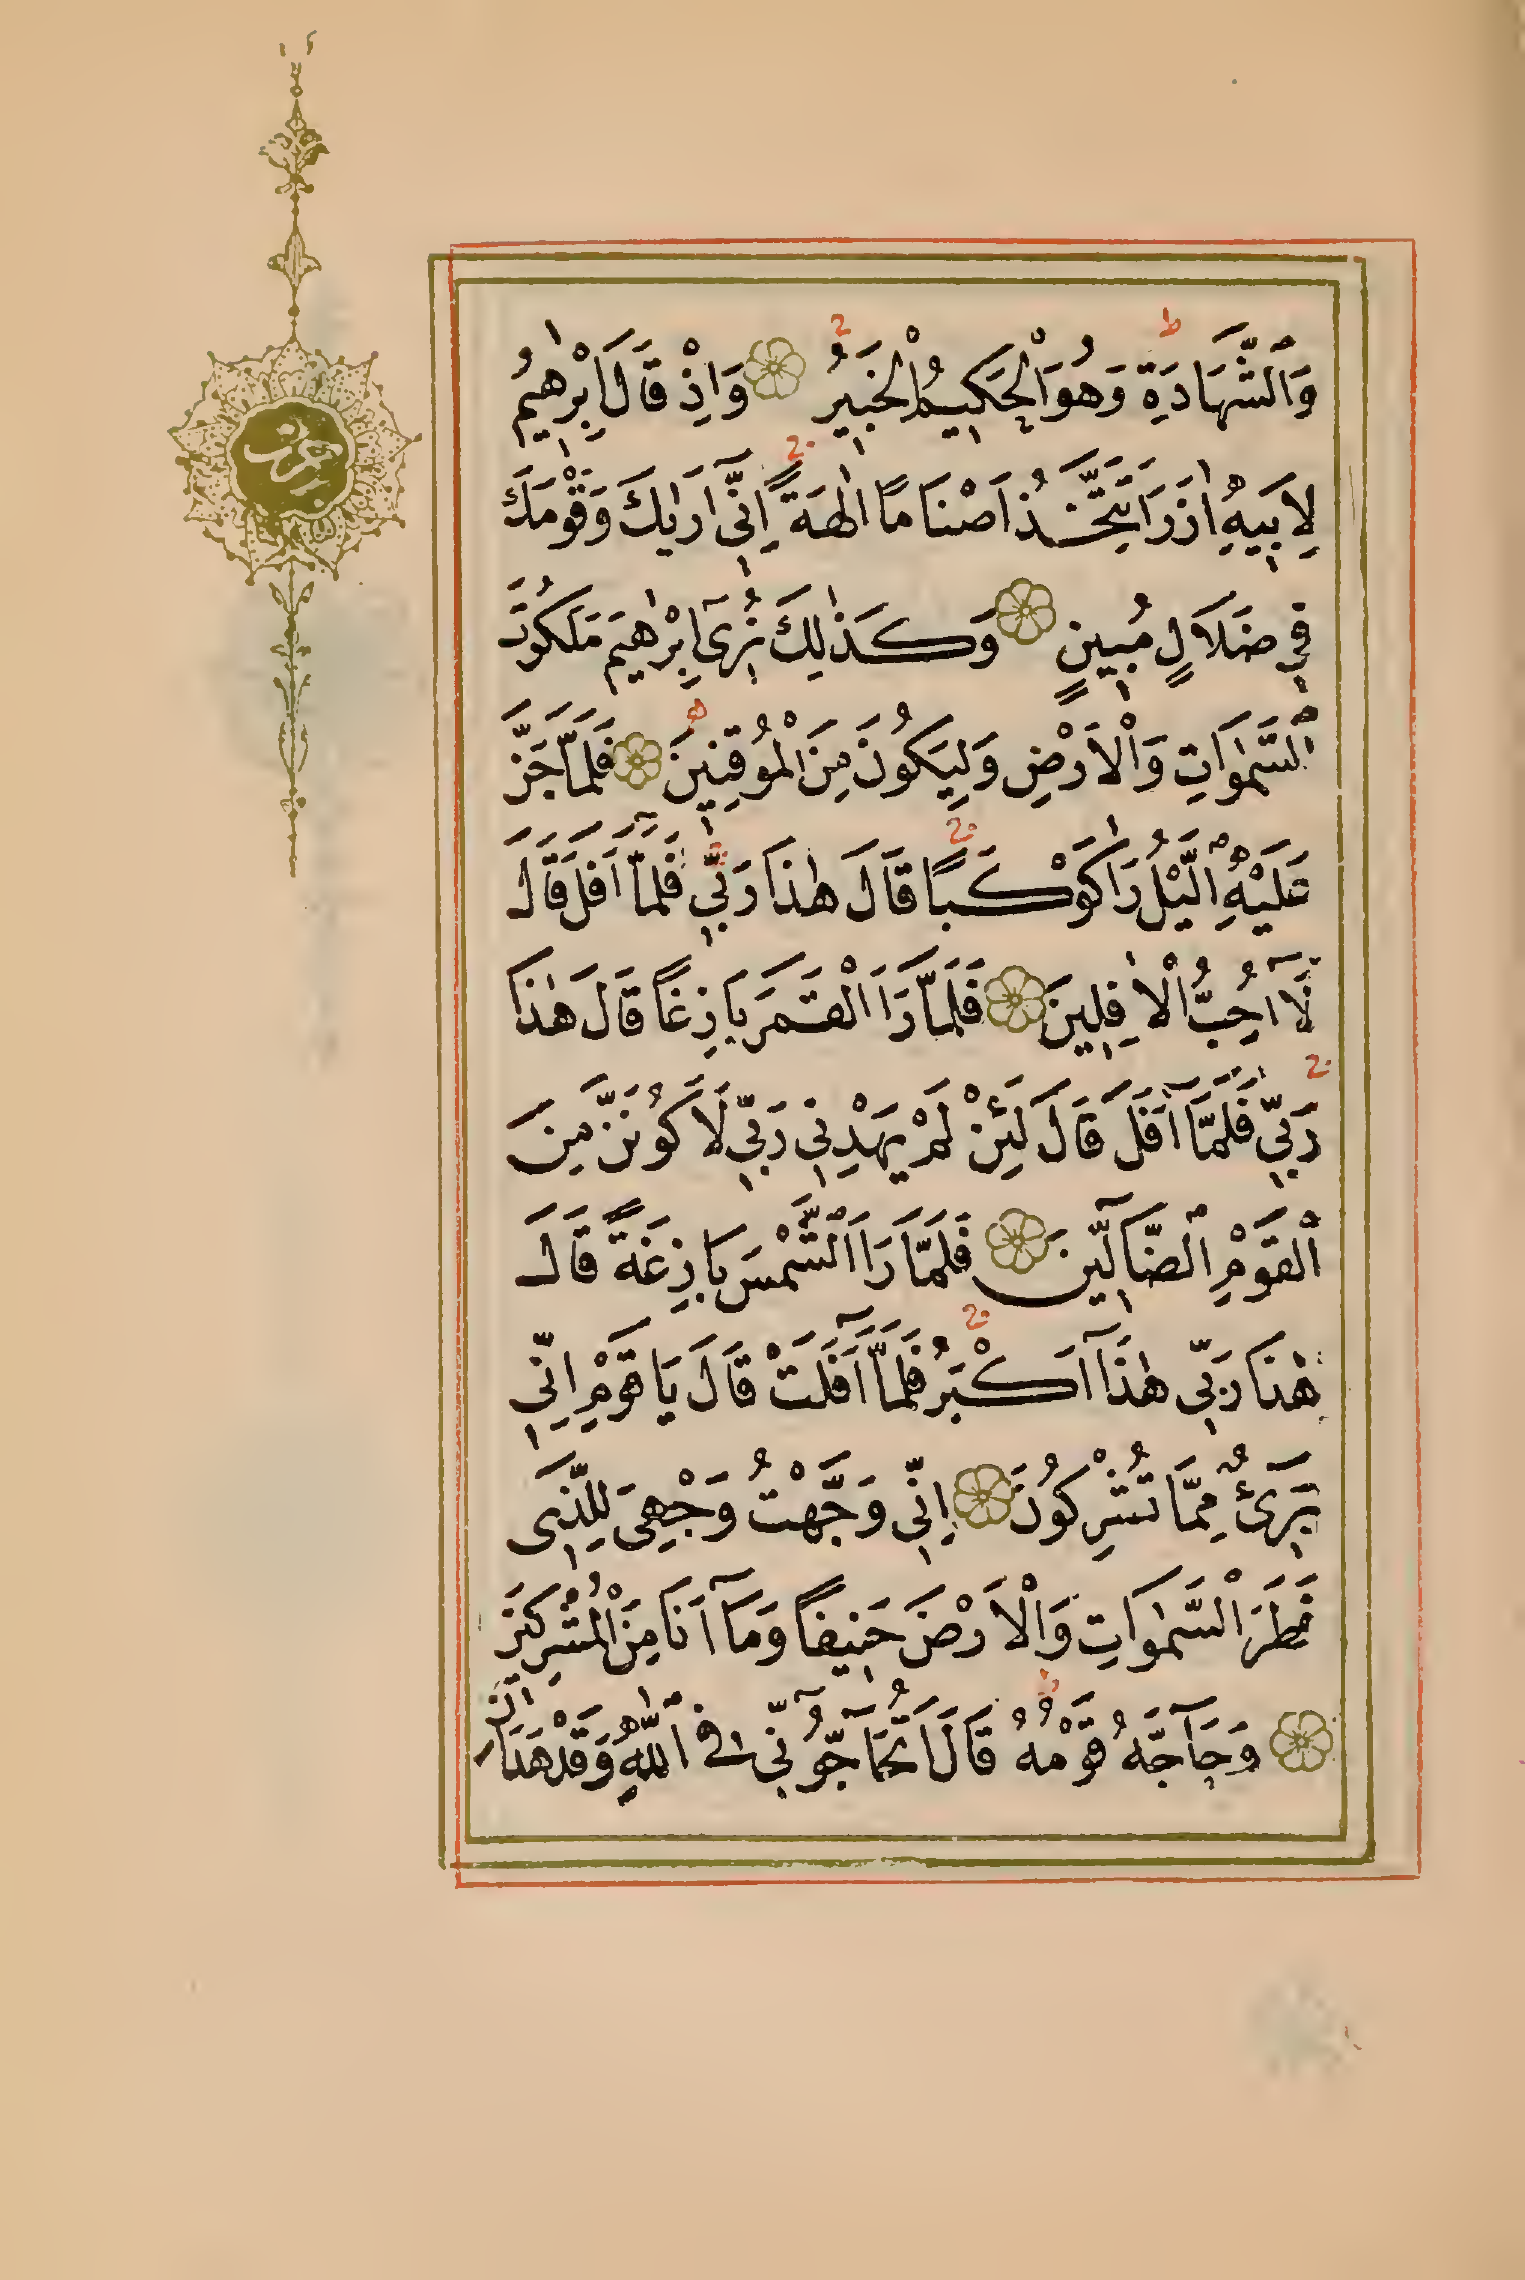 وَالشَّهَادَةِ وَهُوَ الْحَكِيمُ الْخَبِيرُ وَاِذْ قَالَ اِبْرٰهِيمُ
لِاَبِيهِ اٰزَرَ اَتَتَّخِذُ اَصْنَامًا اٰلِهَةً اِنِّي اَرٰيكَ وَقَوْمَكَ
فِي ضَلَالٍ مُبِينٍ وَكَذٰلِكَ نُرِي اِبْرٰهِيمَ مَلَكُوتَ
السَّمٰوَاتِ وَالْاَرْضِ وَلِيَكُونَ مِنَ الْمُوقِنِينَ فَلَمَّا جَنَّ
عَلَيْهِ الَّيْلُ رَاٰ كَوْكَبًا قَالَ هٰذَا رَبِّي فَلَمَّا اَفَلَ قَالَ
لَا اُحِبُّ الْاٰفِلِينَ فَلَمَّا رَاَ الْقَمَرَ بَازِغًا قَالَ هٰذَا
رَبِّي فَلَمَّا اَفَلَ قَالَ لَئِنْ لَمْ يَهْدِنِي رَبِّي لَاَكُونَنَّ مِنَ
الْقَوْمِ الضَّالِّينَ فَلَمَّا رَاَ الشَّمْسَ بَازِغَةً قَالَ
هٰذَا رَبِّي هٰذَا اَكْبَرُ فَلَمَّا اَفَلَتْ قَالَ يَا قَوْمِ اِنِّي
بَرِيءٌ مِمَّا تُشْرِكُونَ اِنِّي وَجَّهْتُ وَجْهِيَ لِلَّذِي
فَطَرَ السَّمٰوَاتِ وَالْاَرْضَ حَنِيفًا وَمَا اَنَا مِنَ الْمُشْرِكِينَ
وَحَاجَّهُ قَوْمُهُ قَالَ اَتُحَاجُّونِّي فِي اللّٰهِ وَقَدْ هَدَانِ